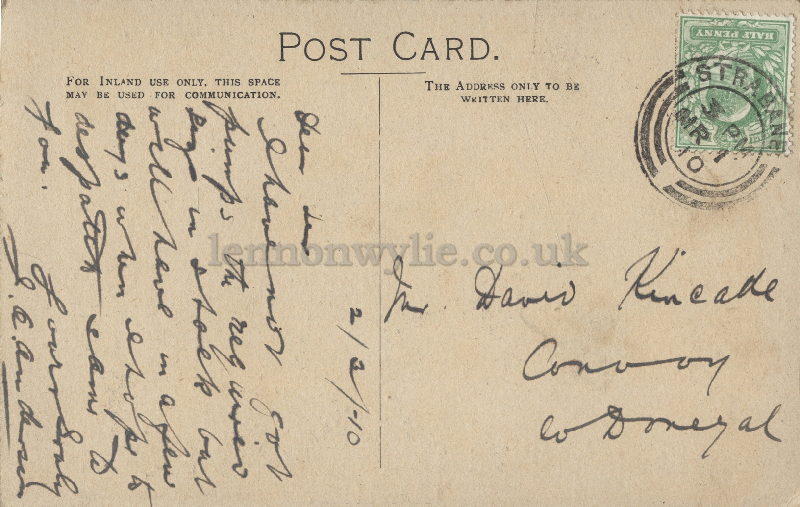 POST CARD.
FOR INLAND USE ONLY. THIS SPACE
MAY BE USED FOR COMMUNICATION.
THE ADDRESS ONLY TO BE
WRITTEN HERE.
HALF PENNY
STRABANE
PM
MR 1
10
2/3/-10
Dear Sir
I have not got
pumps the required
size in stock but
will have in a few
days when I hope to
despatch same to
you.
Yours truly
Anderson
Mr. David Kincade
Convoy
Co Donegal
lennonwylie.co.uk